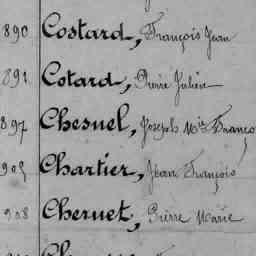 890 Costard, François Jean
891 Cotard, Pierre Julien
897 Chesnel, Joseph Mie Franço
905 Chartier, Jean François
908 Chernet, Pierre Marie